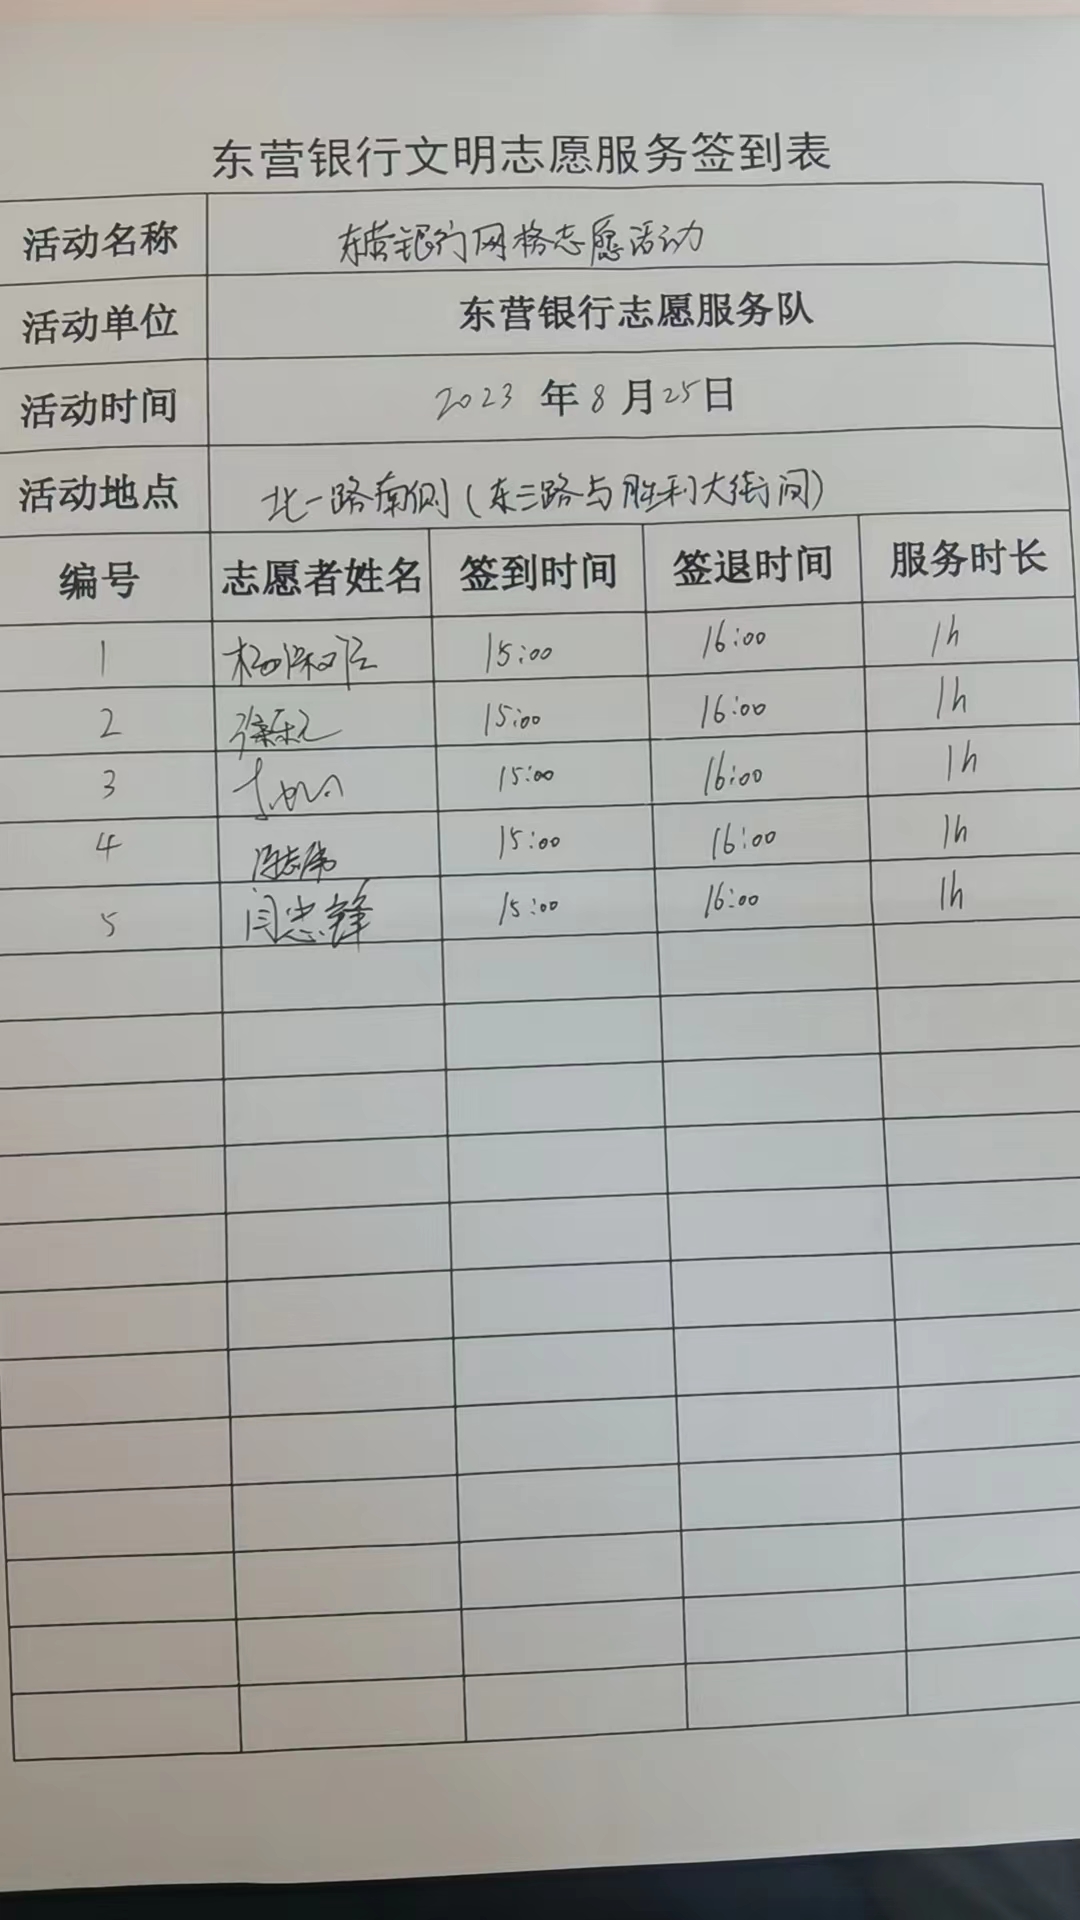 东营银行文明志愿服务签到表
活动名称 东营银行网格志愿活动
活动单位 东营银行志愿服务队
活动时间 2023 年 8 月 25 日
活动地点 北一路南侧(东三路与胜利大街间)
编号 志愿者姓名 签到时间 签退时间 服务时长
1 15:00 16:00 1h
2 15:00 16:00 1h
3 15:00 16:00 1h
4 15:00 16:00 1h
5 闫忠锋 15:00 16:00 1h